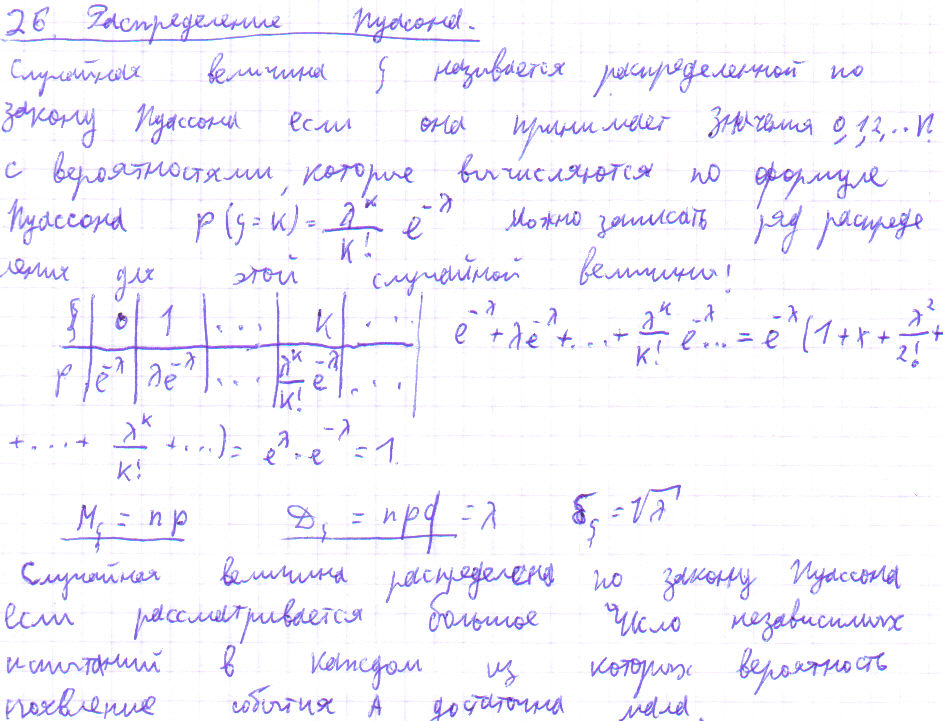 26. Распределение Пуассона.
Случайная величина ξ называется распределенной по
закону Пуассона если она принимает значения 0,1,2,...n.
с вероятностями, которые вычисляются по формуле
Пуассона p(ξ=k)=λ^k/k! e^-λ Можно записать ряд распреде
ления для этой случайной величины!
ξ | 0 | 1 | ... | k | ... e^-λ+λe^-λ+...+λ^k/k! e^-λ...=e^-λ(1+λ+λ^2/2!+
p | e^-λ | λe^-λ | ... | λ^k/k! e^-λ | ...
+...+ λ^k/k! +...)= e^λ·e^-λ=1.
Mξ = np Dξ = npq = λ δξ = √λ
Случайная величина распределена по закону Пуассона
если рассматривается большое число независимых
испытаний в каждом из которых вероятность
появление события А достаточна мала.